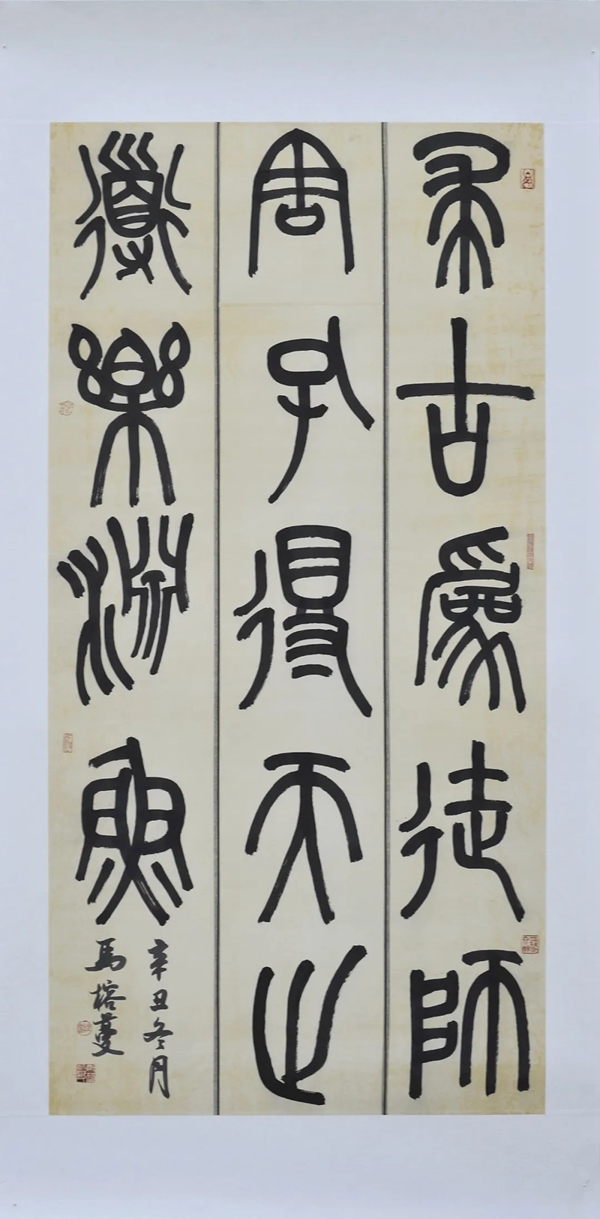 求古為徒師
周孔得天之
道樂淵魚
辛丑冬月
馬榕蔓